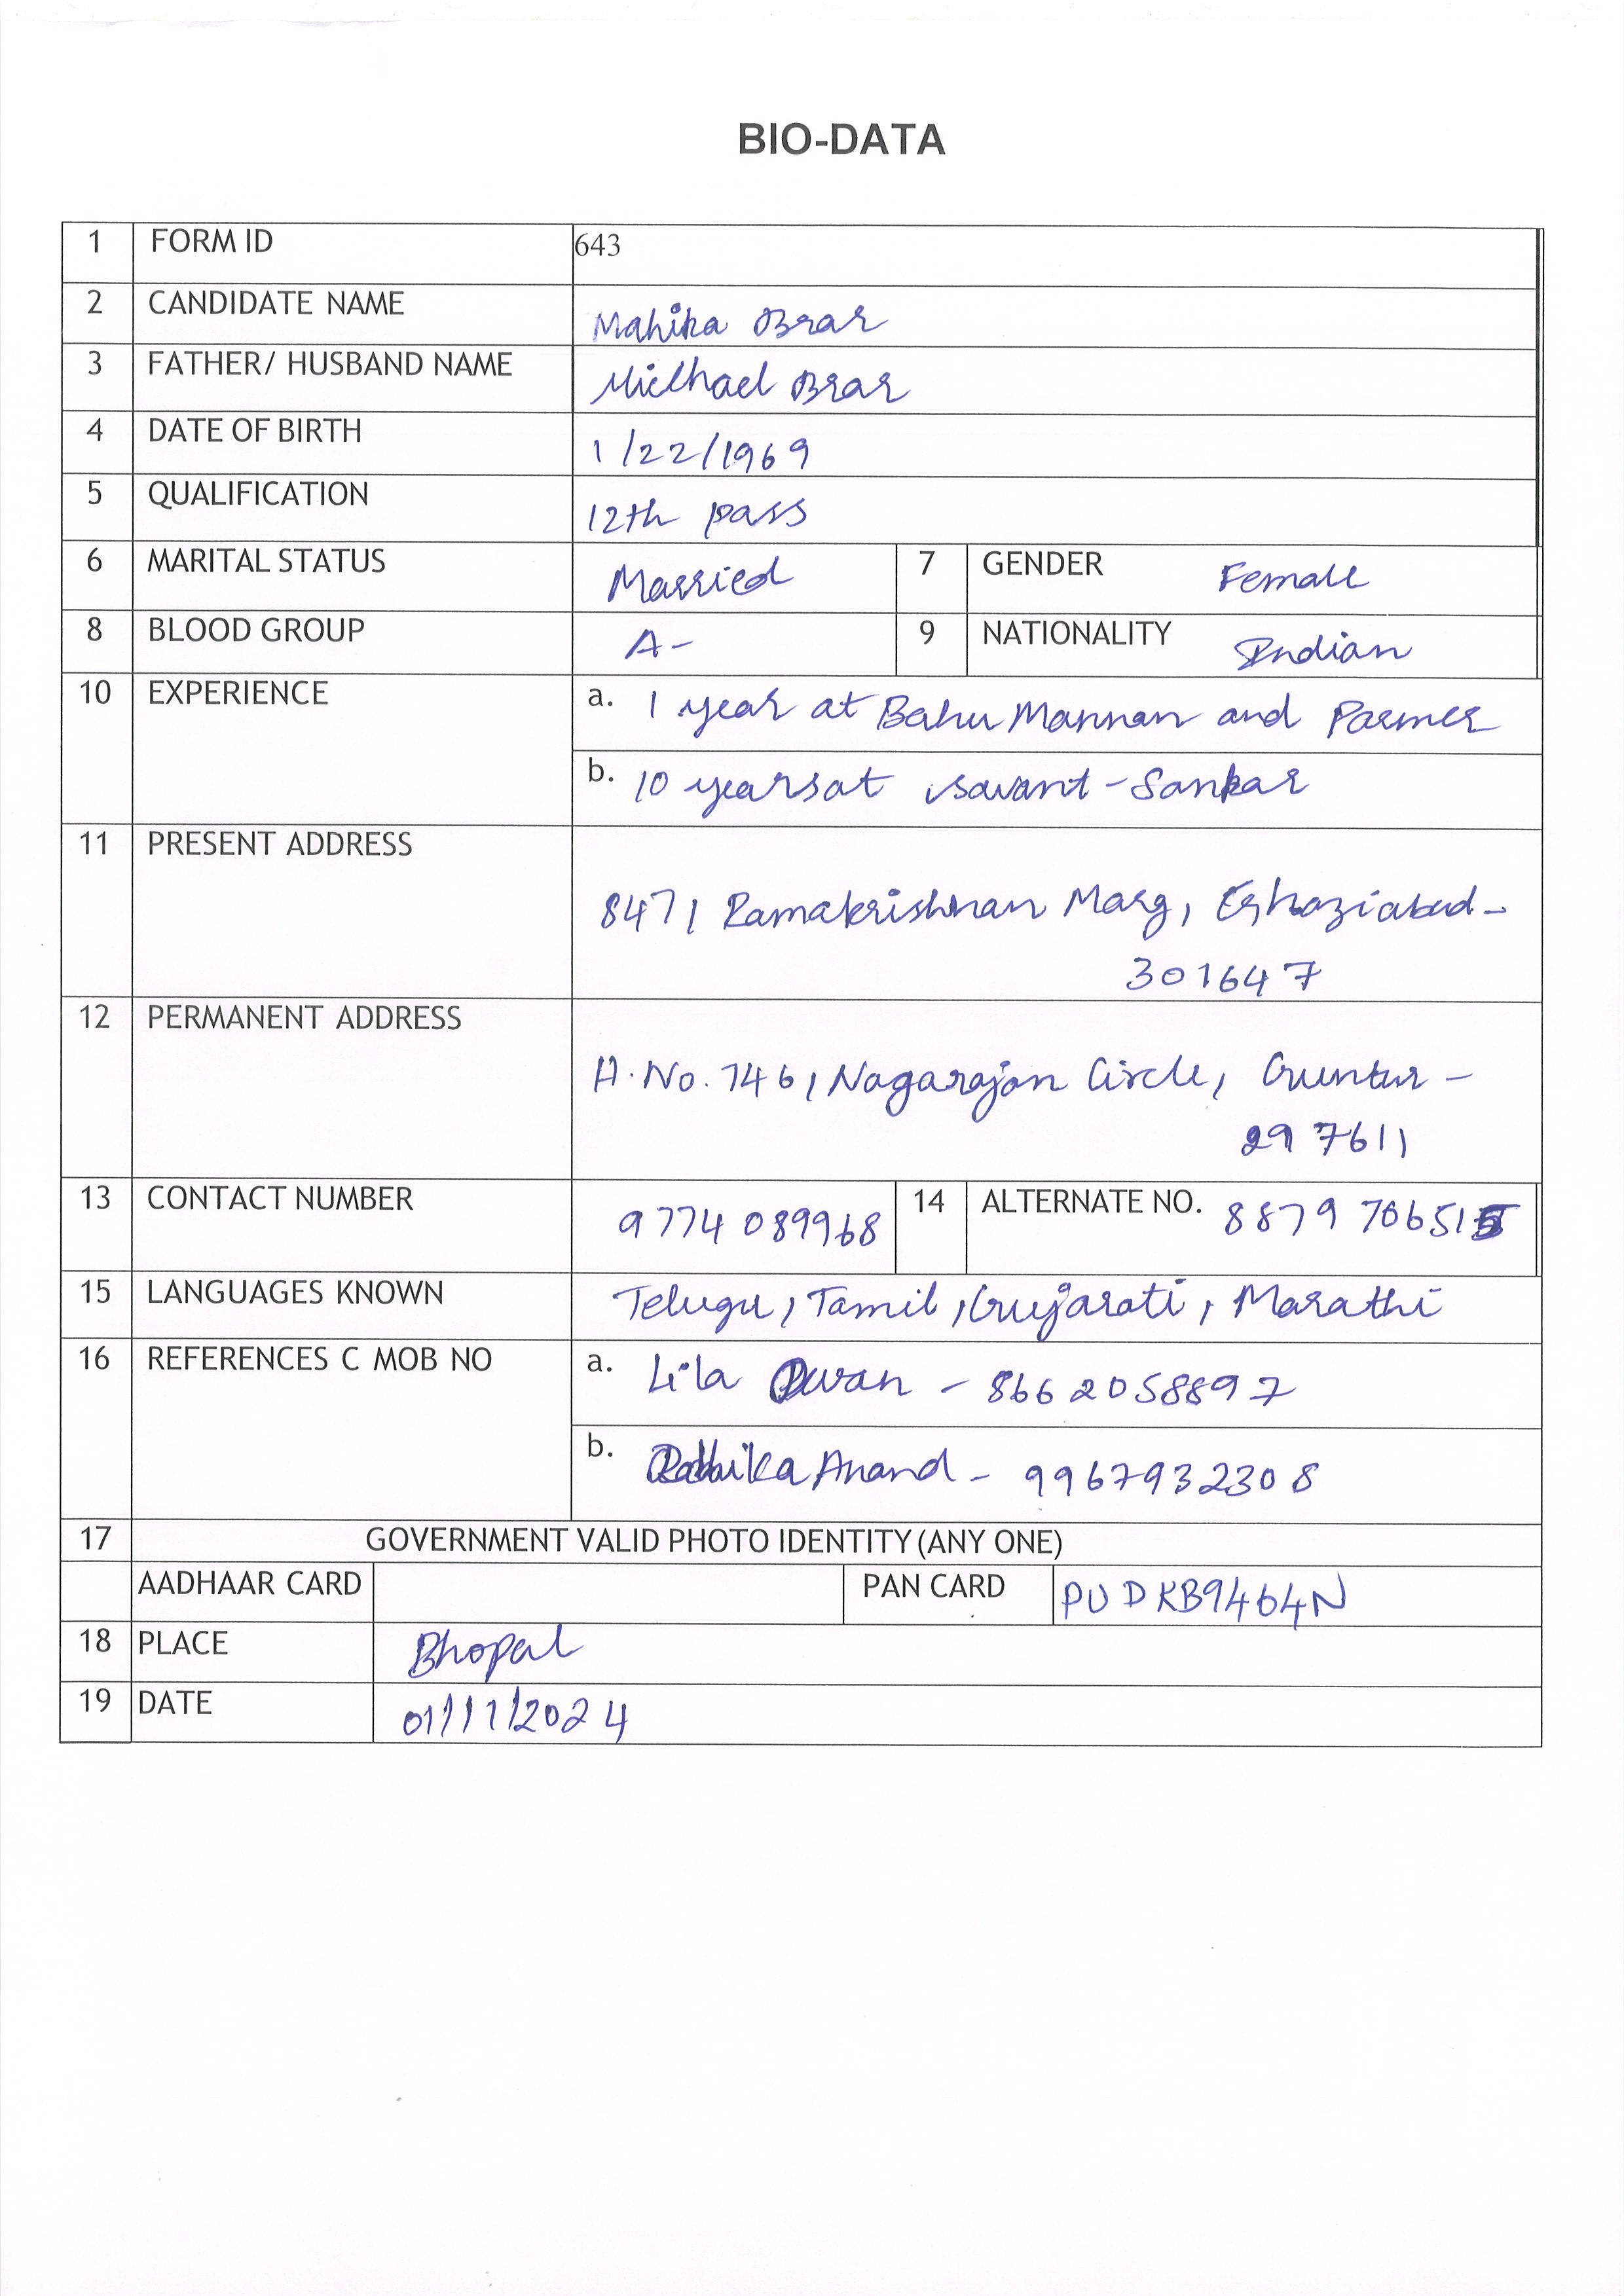 BIO-DATA
1 FORM ID 643
2 CANDIDATE NAME Mahika Brar
3 FATHER/ HUSBAND NAME Michael Brar
4 DATE OF BIRTH 1/22/1969
5 QUALIFICATION 12th pass
6 MARITAL STATUS Married 7 GENDER Female
8 BLOOD GROUP A- 9 NATIONALITY Indian
10 EXPERIENCE a. 1 year at Bahu Mannan and Parmer
b. 10 years at Savant-Sankar
11 PRESENT ADDRESS
8471 Ramakrishnan Marg, Ghaziabad-
301647
12 PERMANENT ADDRESS
H.No. 746, Nagarajan Circle, Guntur-
297611
13 CONTACT NUMBER 9774089968 14 ALTERNATE NO. 8879706515
15 LANGUAGES KNOWN Telugu, Tamil, Gujarati, Marathi
16 REFERENCES C MOB NO a. Lila - 8662058897
b. Anand - 9967932308
17 GOVERNMENT VALID PHOTO IDENTITY(ANY ONE)
AADHAAR CARD PAN CARD PUDKB9464N
18 PLACE Bhopal
19 DATE 01/11/2024